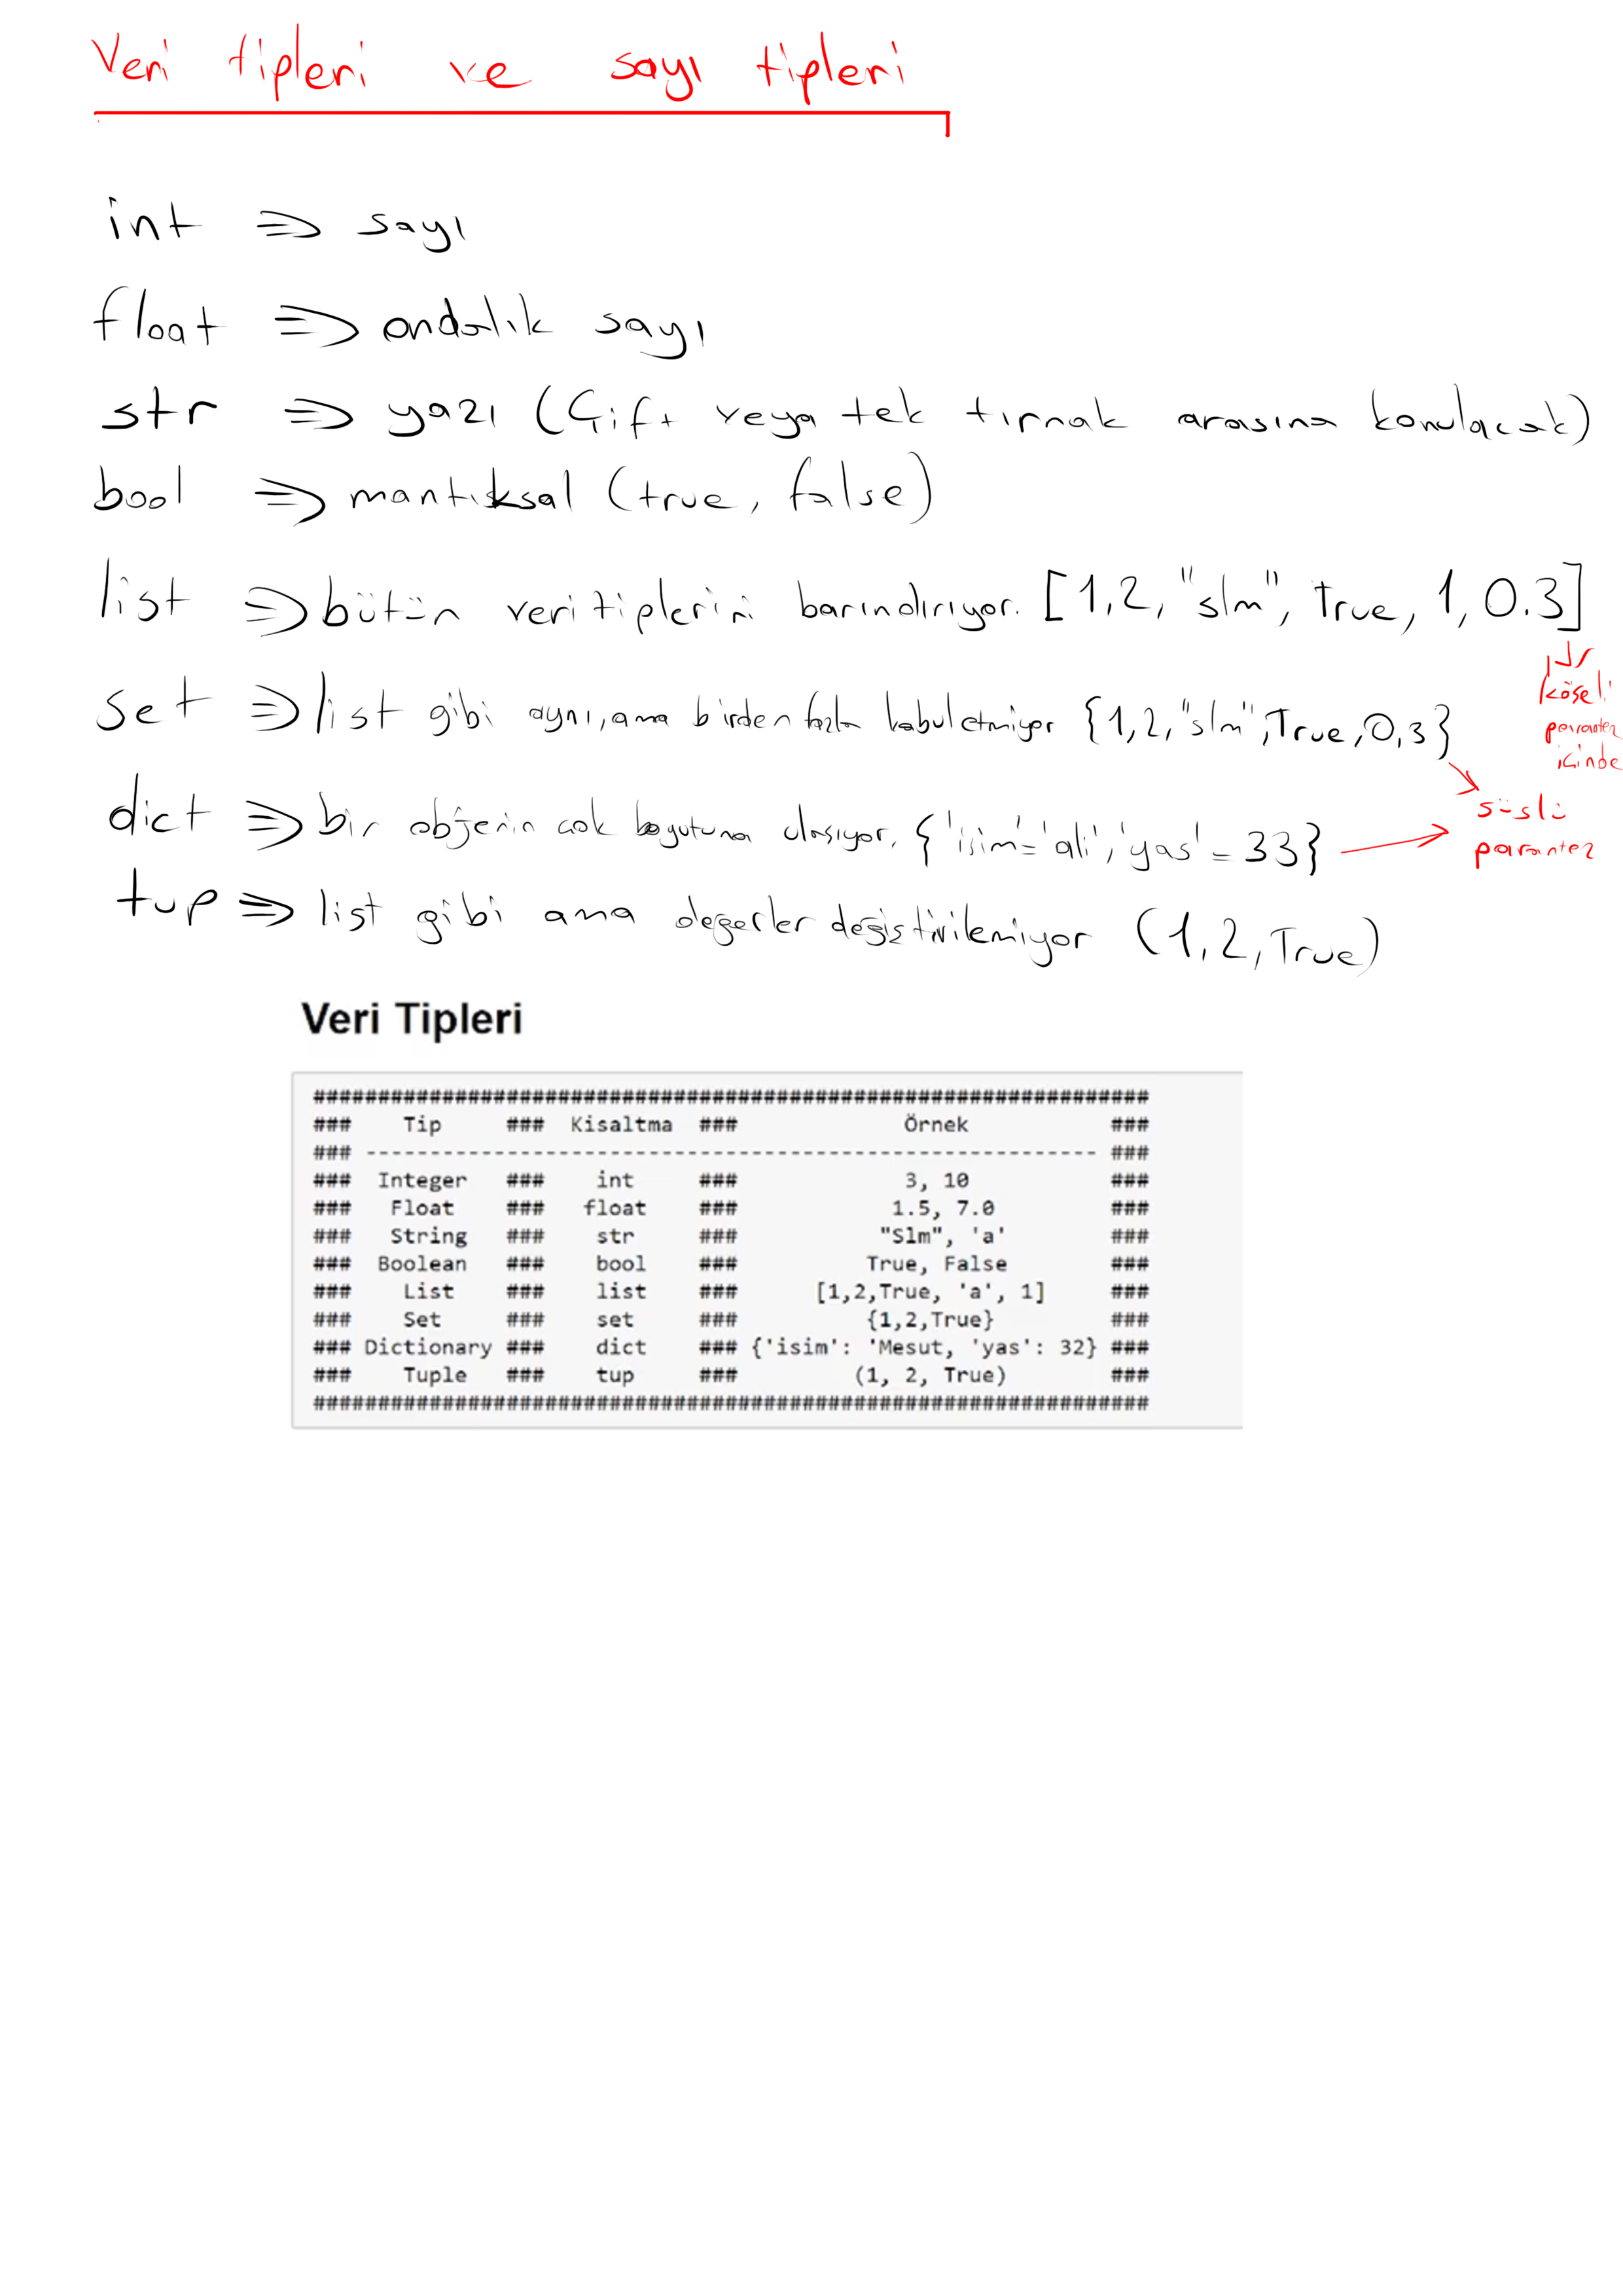 Veri tipleri ve sayı tipleri
int => sayı
float => ondalık sayı
str => yazı (Çift veya tek tırnak arasına konulacak)
bool => mantıksal (true, false)
list => bütün veri tiplerini barındırıyor. [1,2,"slm", True, 1, 0.3]
köşeli
parantez
içinde
set => list gibi aynı, ama birden fazla kabul etmiyor {1,2,"slm",True,0,3}
süslü
parantez
dict => bir objenin çok boyutuna ulaşıyor. {'isim'='ali','yas'=33}
tup => list gibi ama değerler değiştirilemiyor (1,2,True)
Veri Tipleri
#################################################################
### Tip ### Kisaltma ### Örnek ###
### --------------------------------------------------------- ###
### Integer ### int ### 3, 10 ###
### Float ### float ### 1.5, 7.0 ###
### String ### str ### "Slm", 'a' ###
### Boolean ### bool ### True, False ###
### List ### list ### [1,2,True, 'a', 1] ###
### Set ### set ### {1,2,True} ###
### Dictionary ### dict ### {'isim': 'Mesut, 'yas': 32} ###
### Tuple ### tup ### (1, 2, True) ###
#################################################################